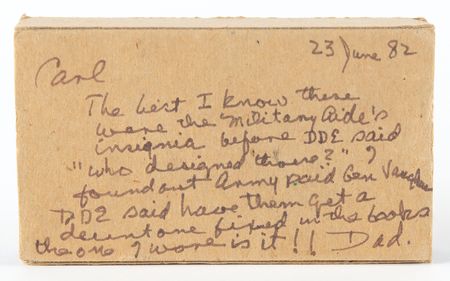 23 June 82
Carl
The best I know these
were the Military Aide's
insignia before DDE said
"who designed those?" I
found out Army said Gen Vaughn
DDE said have them get a
decent one fixed in the books
the one I wore is it!! Dad.